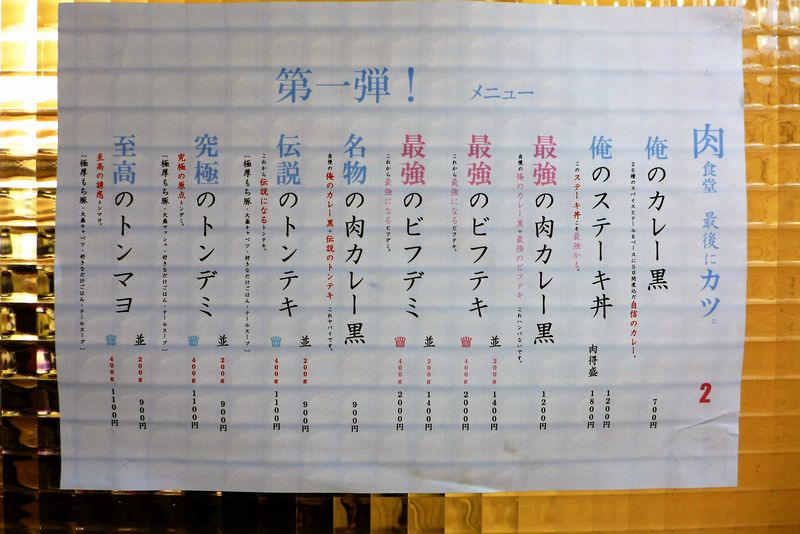 第一弾！ メニュー
肉食堂 最後にカツ。 2
俺のカレー黒 700円
26種のスパイスとテールをベースに5日間煮込んだ自信のカレー。
俺のステーキ丼 1200円
肉得盛 1800円
このステーキ丼こそ最強かも。
最強の肉カレー黒 1200円
自慢の俺のカレー黒+最強のビフテキ これハンパないです。
最強のビフテキ 並 200g 1400円
400g 2000円
これから最強になるビフテキ。
最強のビフデミ 並 200g 1400円
400g 2000円
これから最強になるビフデミ。
名物の肉カレー黒 900円
自慢の俺のカレー黒+伝説のトンテキ これヤバイです。
伝説のトンテキ 並 200g 900円
400g 1100円
これから伝説になるトンテキ。
［極厚もち豚・大盛キャベツ・好きなだけごはん・テールスープ］
究極のトンデミ 並 200g 900円
400g 1100円
究極の原点トンデミ。
［極厚もち豚・大盛マッシュ・好きなだけごはん・テールスープ］
至高のトンマヨ 並 200g 900円
400g 1100円
至高の誘惑トンマヨ。
［極厚もち豚・大盛キャベツ・好きなだけごはん・テールスープ］